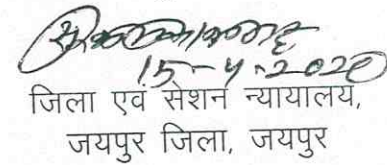 15-4-2020
जिला एवं सेशन न्यायालय,
जयपुर जिला, जयपुर